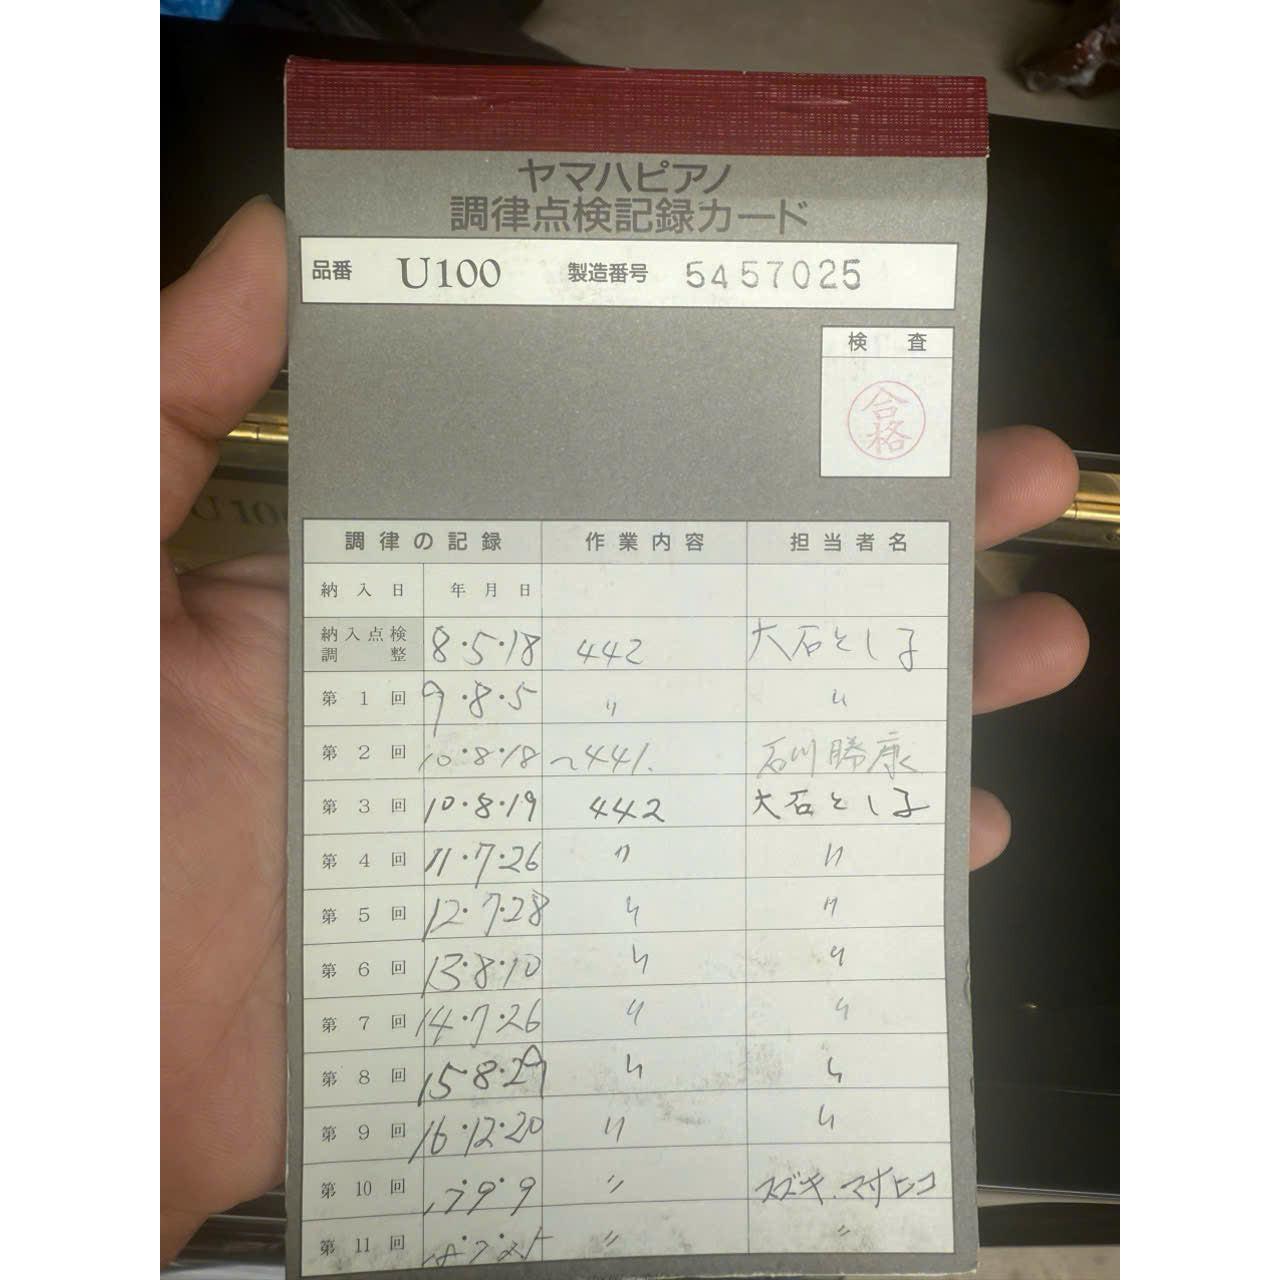 ヤマハピアノ
調律点検記録カード
品番 U100 製造番号 5457025
検 査
合格
U100
調 律 の 記 録 作 業 内 容 担 当 者 名
納 入 日 年 月 日
納 入 点 検 調 整 8・5・18 442 大石とし子
第 1 回 9・8・5 〃 〃
第 2 回 10・8・18 〜441. 石川勝康
第 3 回 10・8・19 442 大石とし子
第 4 回 11・7・26 〃 〃
第 5 回 12・7・28 〃 〃
第 6 回 13・8・10 〃 〃
第 7 回 14・7・26 〃 〃
第 8 回 15・8・29 〃 〃
第 9 回 16・12・20 〃 〃
第 10 回 17・9・9 〃 スズキ.マサヒコ
第 11 回 18・7・25 〃 〃